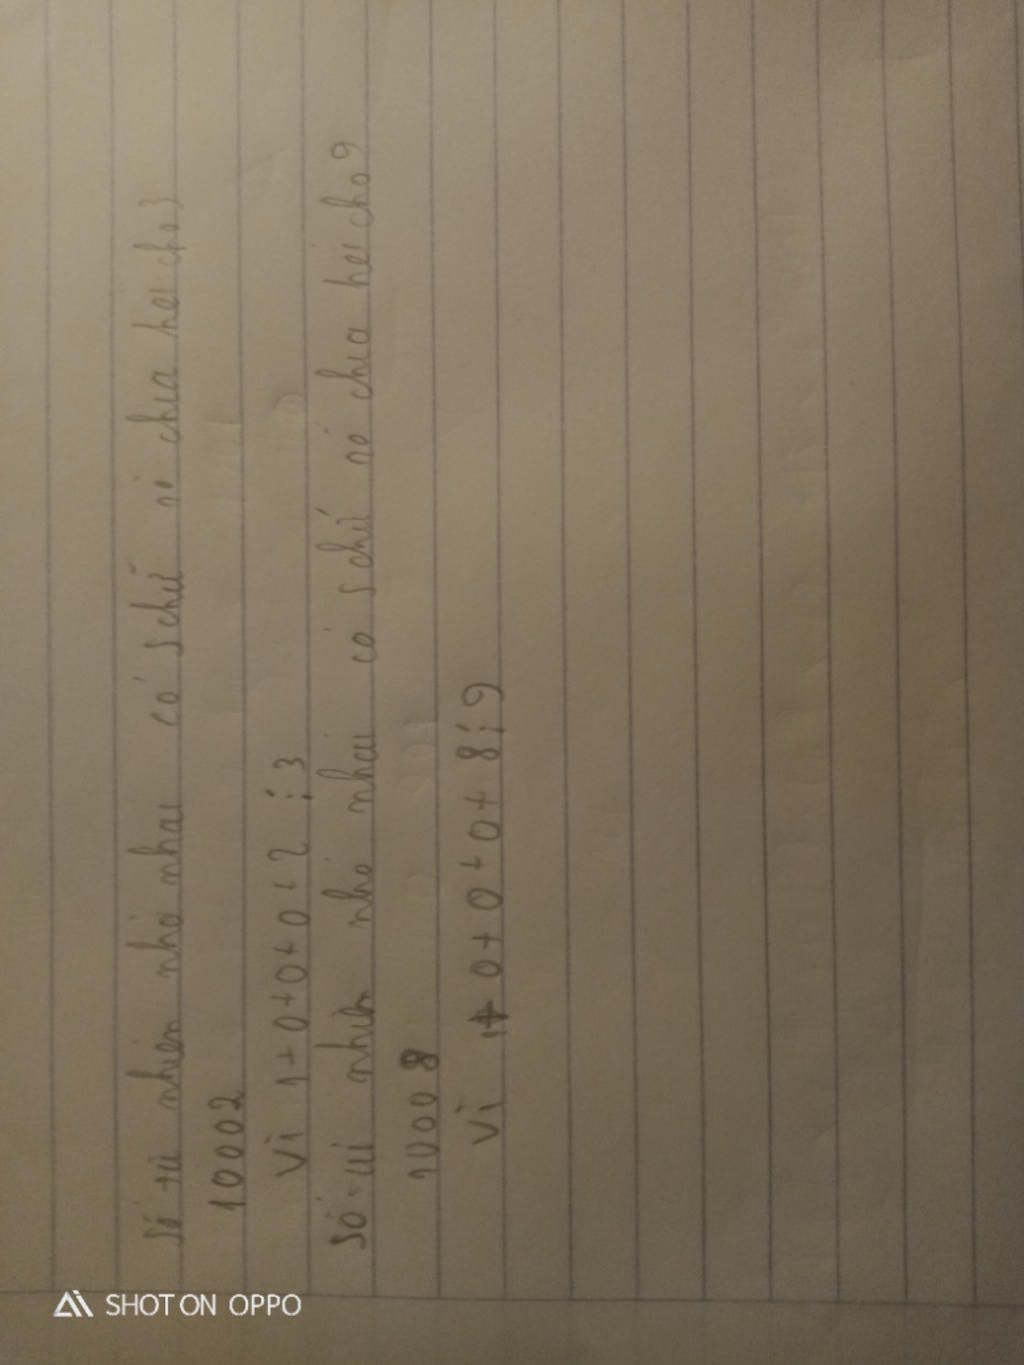 số tự nhiên nhỏ nhất có 5 chữ số chia hết cho 3
10002
Vì 1+0+0+0+2 ⋮ 3
Số tự nhiên nhỏ nhất có 5 chữ số chia hết cho 9
10008
Vì 1+0+0+0+8 ⋮ 9
SHOT ON OPPO